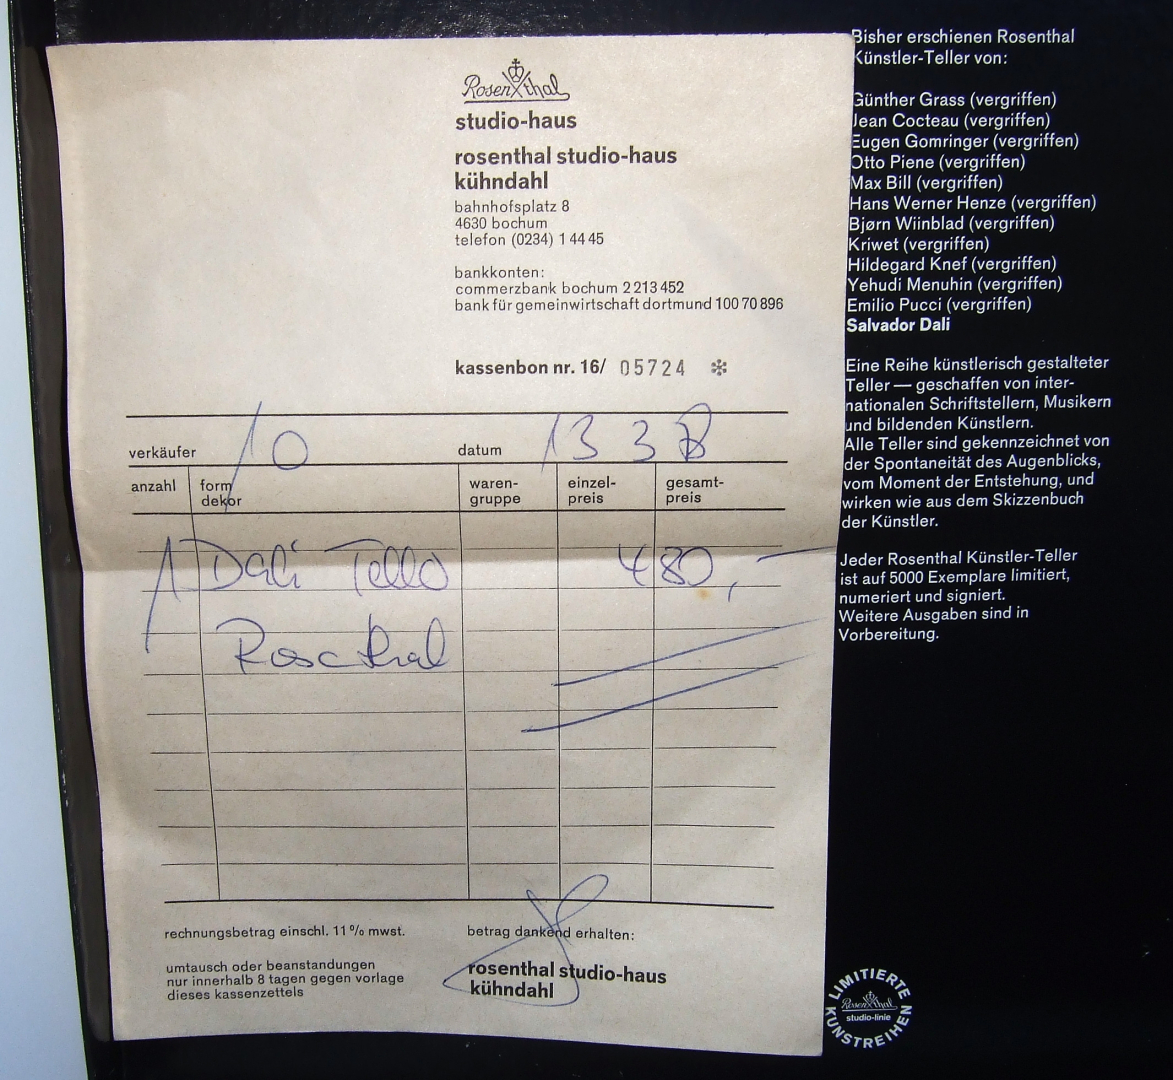 Rosenthal
studio-haus
rosenthal studio-haus
kühndahl
bahnhofsplatz 8
4630 bochum
telefon (0234) 1 44 45
bankkonten:
commerzbank bochum 2 213 452
bank für gemeinwirtschaft dortmund 100 70 896
kassenbon nr. 16/ 05724 ✻
verkäufer 10 datum 13 3 78
anzahl form dekor waren-gruppe einzel-preis gesamt-preis
1 Dali Teller 480,—
Rosenthal
rechnungsbetrag einschl. 11% mwst.
umtausch oder beanstandungen
nur innerhalb 8 tagen gegen vorlage
dieses kassenzettels
betrag dankend erhalten:
rosenthal studio-haus
kühndahl
Bisher erschienen Rosenthal
Künstler-Teller von:
Günther Grass (vergriffen)
Jean Cocteau (vergriffen)
Eugen Gomringer (vergriffen)
Otto Piene (vergriffen)
Max Bill (vergriffen)
Hans Werner Henze (vergriffen)
Bjørn Wiinblad (vergriffen)
Kriwet (vergriffen)
Hildegard Knef (vergriffen)
Yehudi Menuhin (vergriffen)
Emilio Pucci (vergriffen)
Salvador Dali
Eine Reihe künstlerisch gestalteter
Teller — geschaffen von inter-
nationalen Schriftstellern, Musikern
und bildenden Künstlern.
Alle Teller sind gekennzeichnet von
der Spontaneität des Augenblicks,
vom Moment der Entstehung, und
wirken wie aus dem Skizzenbuch
der Künstler.
Jeder Rosenthal Künstler-Teller
ist auf 5000 Exemplare limitiert,
numeriert und signiert.
Weitere Ausgaben sind in
Vorbereitung.
LIMITIERTE
Rosenthal
studio-linie
KUNSTREIHEN